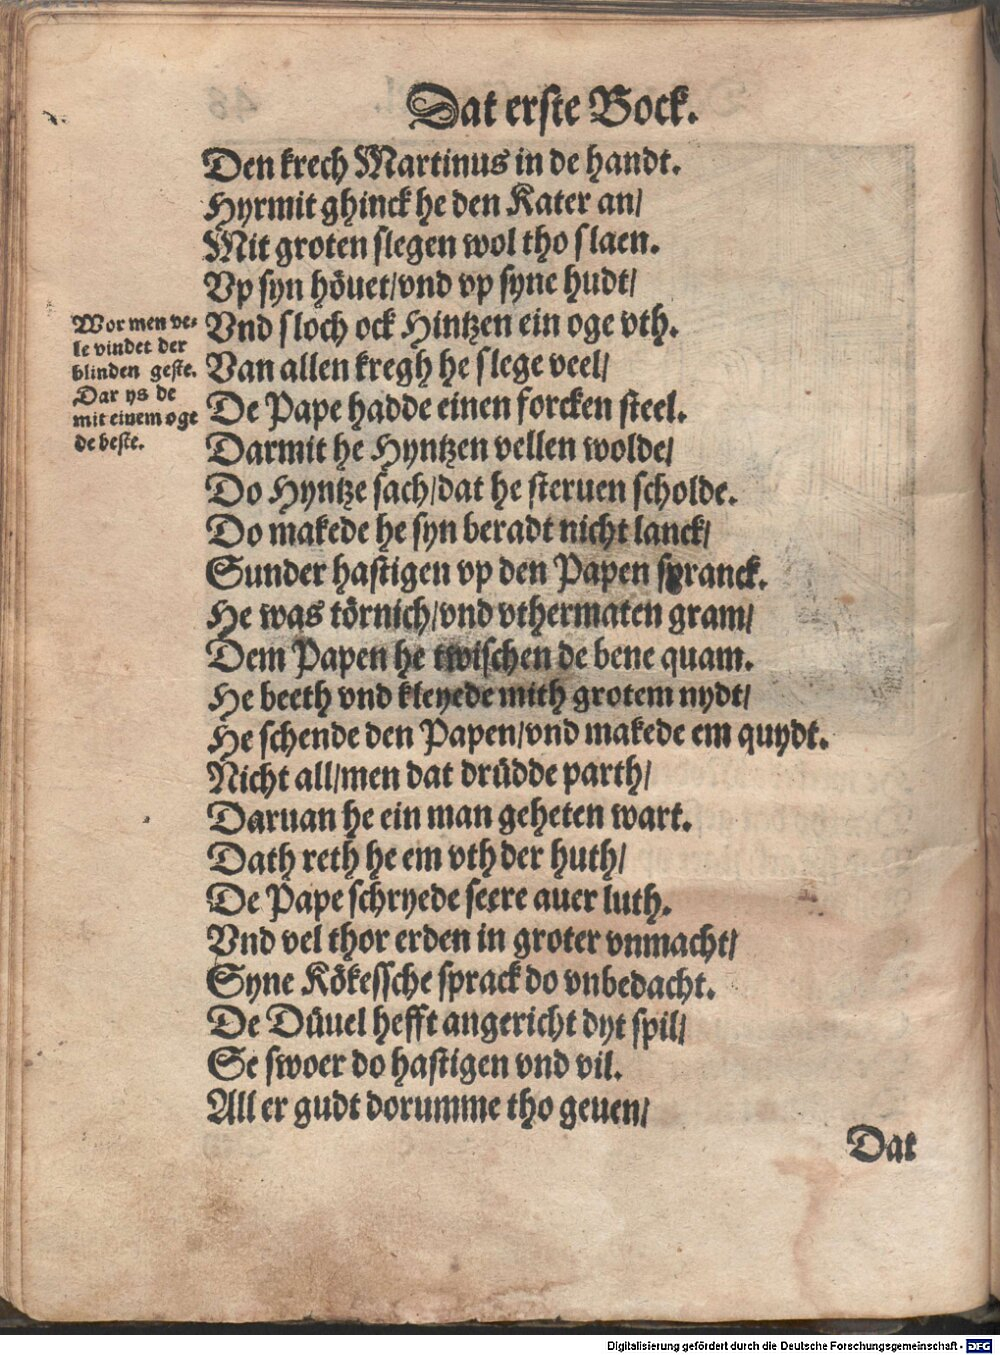 Dat erste Bock.
Den krech Martinus in de handt.
Hyrmit ghinck he den Kater an/
Mit groten slegen wol tho slaen.
Vp syn höuet/vnd vp syne hudt/
Vnd sloch ock Hintzen ein oge vth.
Van allen kregh he slege veel/
De Pape hadde einen forcken steel.
Darmit he Hyntzen vellen wolde/
Do Hyntze sach/dat he steruen scholde.
Do makede he syn beradt nicht lanck/
Sunder hastigen vp den Papen spranck.
He was törnich/vnd vthermaten gram/
Dem Papen he twischen de bene quam.
He beeth vnd kleyede mith grotem nydt/
He schende den Papen/vnd makede em quydt.
Nicht all/men dat drüdde parth/
Daruan he ein man geheten wart.
Dath reth he em vth der huth/
De Pape schryede seere auer luth.
Vnd vel thor erden in groter vnmacht/
Syne Kökessche sprack do vnbedacht.
De Düuel hefft angericht dyt spil/
Se swoer do hastigen vnd vil.
All er gudt dorumme tho geuen/
Dat
Wor men ve-
le vindet der
blinden geste.
Dar ys de
mit einem oge
de beste.
Digitalisierung gefördert durch die Deutsche Forschungsgemeinschaft - DFG